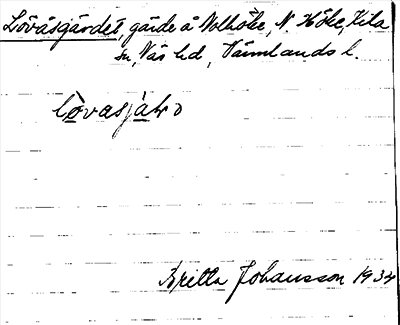 Lövåsgärdet, gärde å Nolhöke, N. Höke, Kila
sn, Näs hd, Värmlands l.
lòvasjàḷo
Britta Johansson 1934